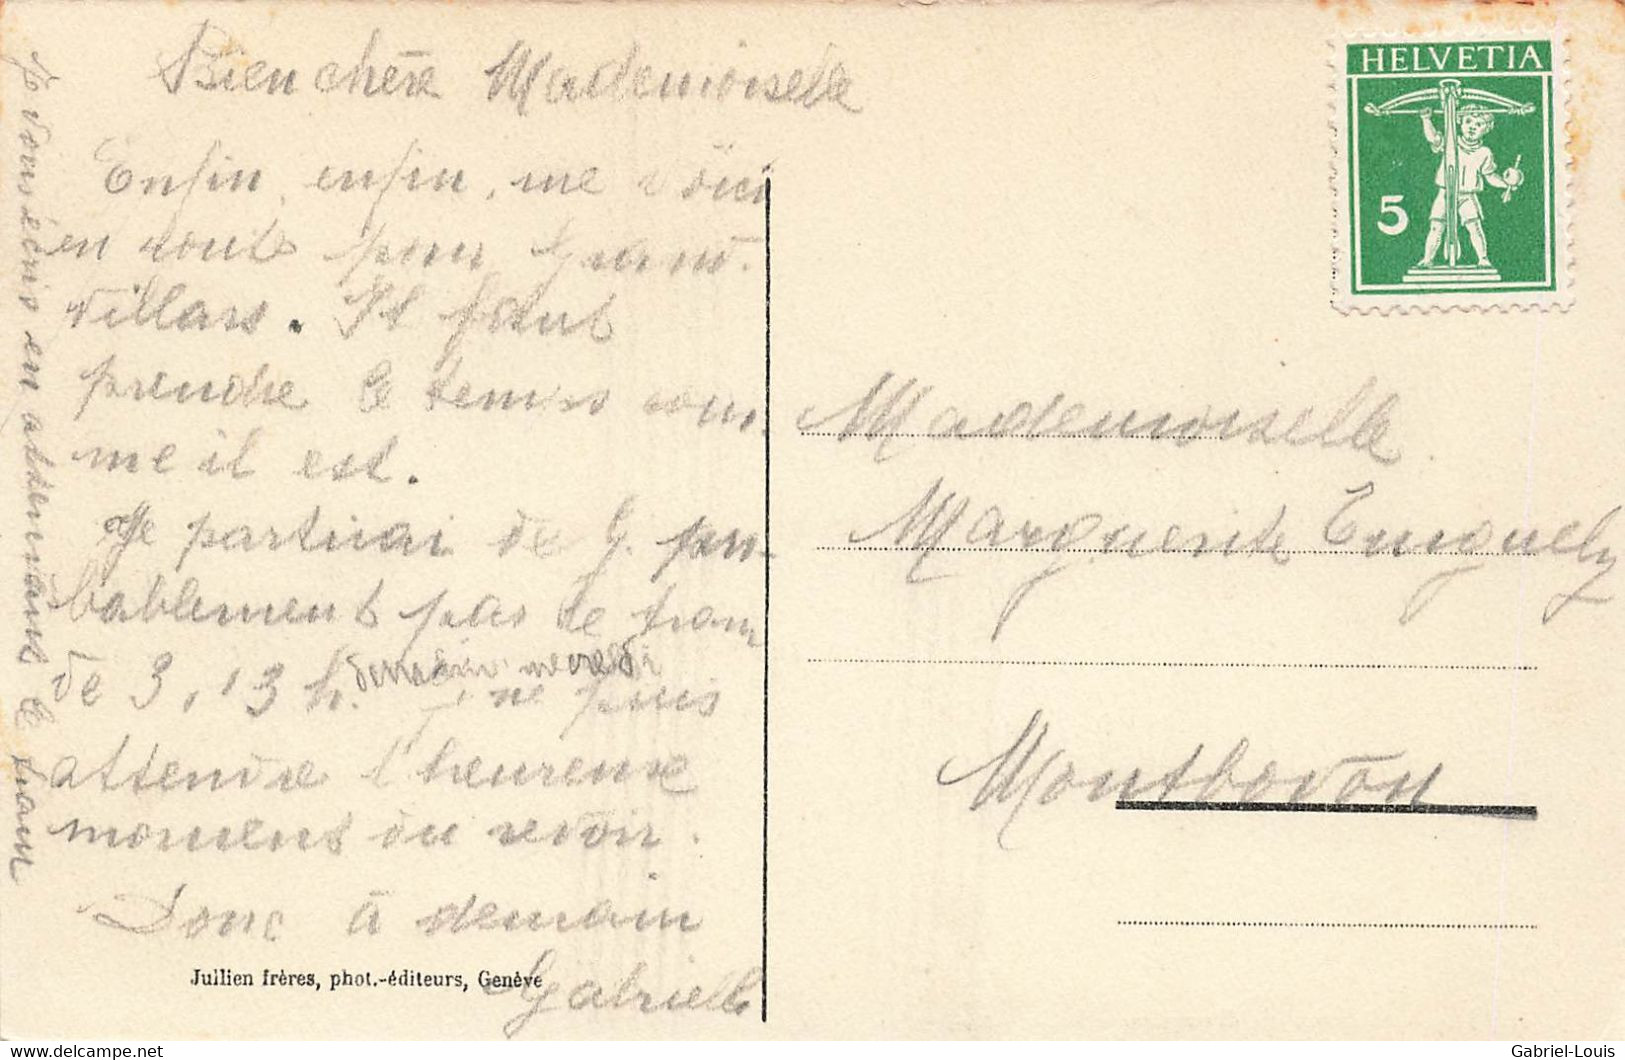 Bien chère Mademoiselle
Enfin, enfin, me voici
en route pour Grand-
villars. Il faut
prendre le temps com-
me il est.
Je partirai de G. pro-
bablement par le train
de 3,13 h. demain mercredi
je ne puis
attendre l'heureux
moment du revoir.
Donc à demain
Gabrielle
Je vous écris en attendant le train
Jullien frères, phot.-éditeurs, Genève
HELVETIA
5
Mademoiselle
Marguerite Tinguely
Montbovon
Gabriel-Louis
delcampe.net